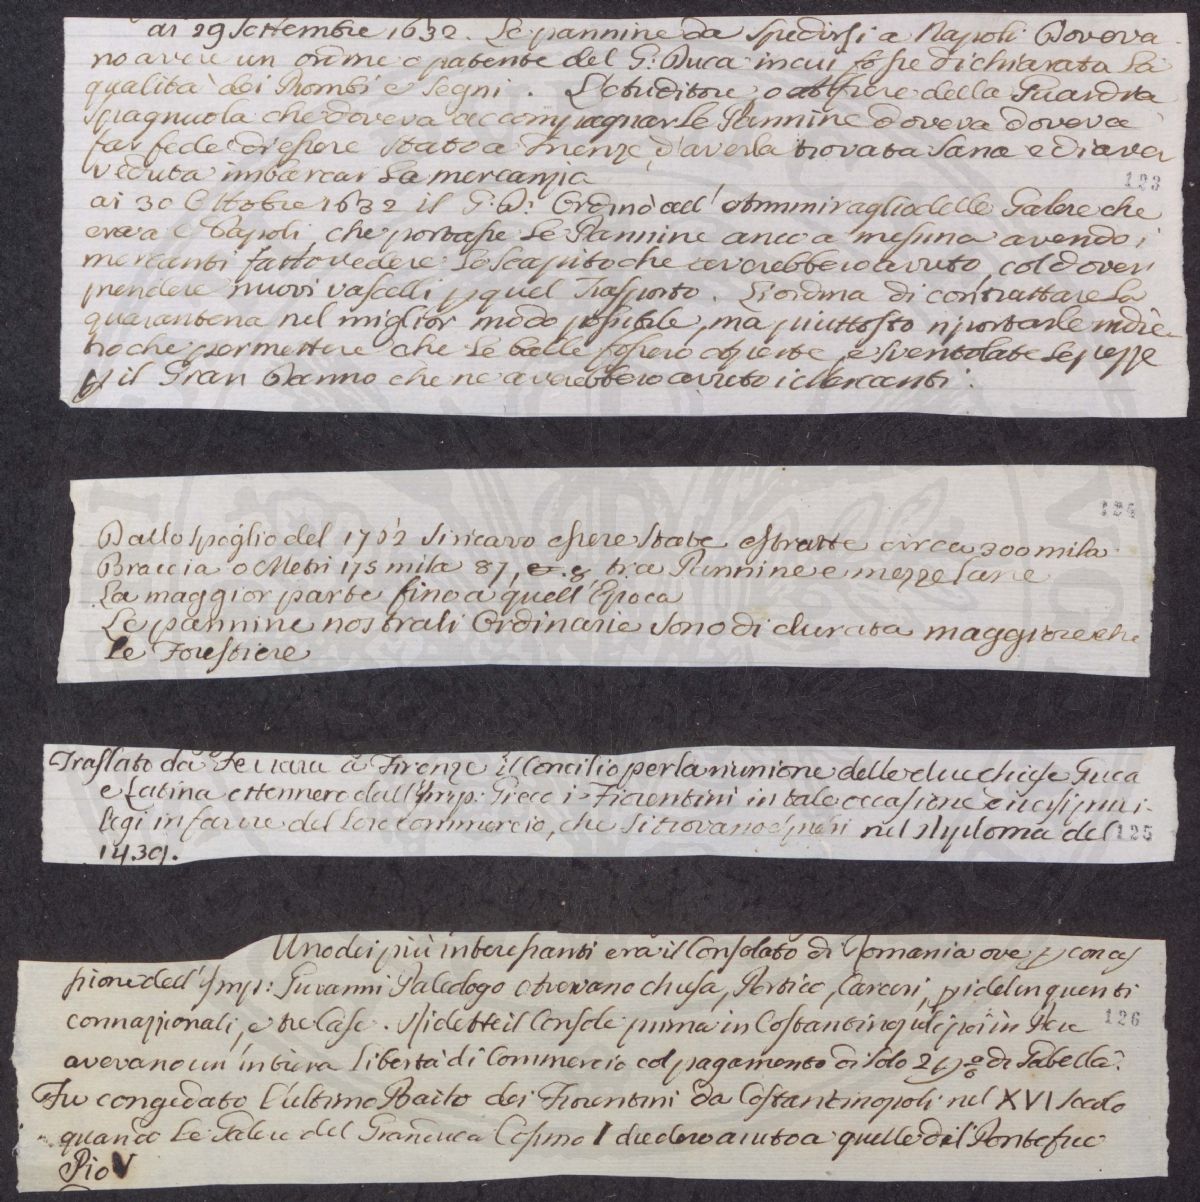 ai 29 Settembre 1632. Le pannine da spedirsi a Napoli Doveva-
no avere un ordine o patente del G: Duca in cui fosse dichiarata la
qualità dei Piombi e Segni. L'
o alfiere della Guardia
spagnuola che doveva accompagnar le Pannine doveva doveva
far fede di essere stato a Firenze, d'averla trovata sana e di aver
veduta imbarcar la mercanzia
123
ai 30 Ottobre 1632 il G: D: Ordinò all' ammiraglio delle Galere che
era a Napoli, che portasse le Pannine anco a Messina avendo i
mercanti fatto vedere lo scapito che averebbero avuto, col dover
prendere nuovi vascelli p quel Trasporto. Gli ordina di contrattare la
quarantena nel miglior modo possibile, ma piuttosto riportarle indie-
tro che permettere che le balle fossero aperte, e sventolate le pezze
p il Gran Danno che ne averebbero avuto i Mercanti.
124
Dallo spoglio del 1762 si ricava essere state estratte circa 300 mila
Braccia o Metri 175 mila 87, tra Pannine e mezze lane
La maggior parte fino a quell' Epoca
Le pannine nostrali Ordinarie sono di durata maggiore che
le Forestiere
Traslato da Ferrara a Firenze il Concilio per la riunione delle due chiese Greca
e Latina ottennero dall' Imp: Greco i Fiorentini in tale occasione diversi privi-
legi in favore del loro commercio, che si trovano espressi nel diploma del
125
1439.
Uno dei più interessanti era il Consolato di Romania ove p conces
sione dell' Imp: Giovanni Paleologo ottennero chiesa, Portico, Carceri, p i delinquenti
connazionali, e tre Case. Risiedette il Console prima in Costantinopoli, poi in Pera
126
avevano un' intiera Libertà di Commercio col pagamento di solo 2 p % di Gabella.
Fu congedato l'ultimo Bailo dei Fiorentini da Costantinopoli nel XVI secolo
quando le Galere del Granduca Cosimo I diedero aiuto a quelle del Pontefice
Pio V